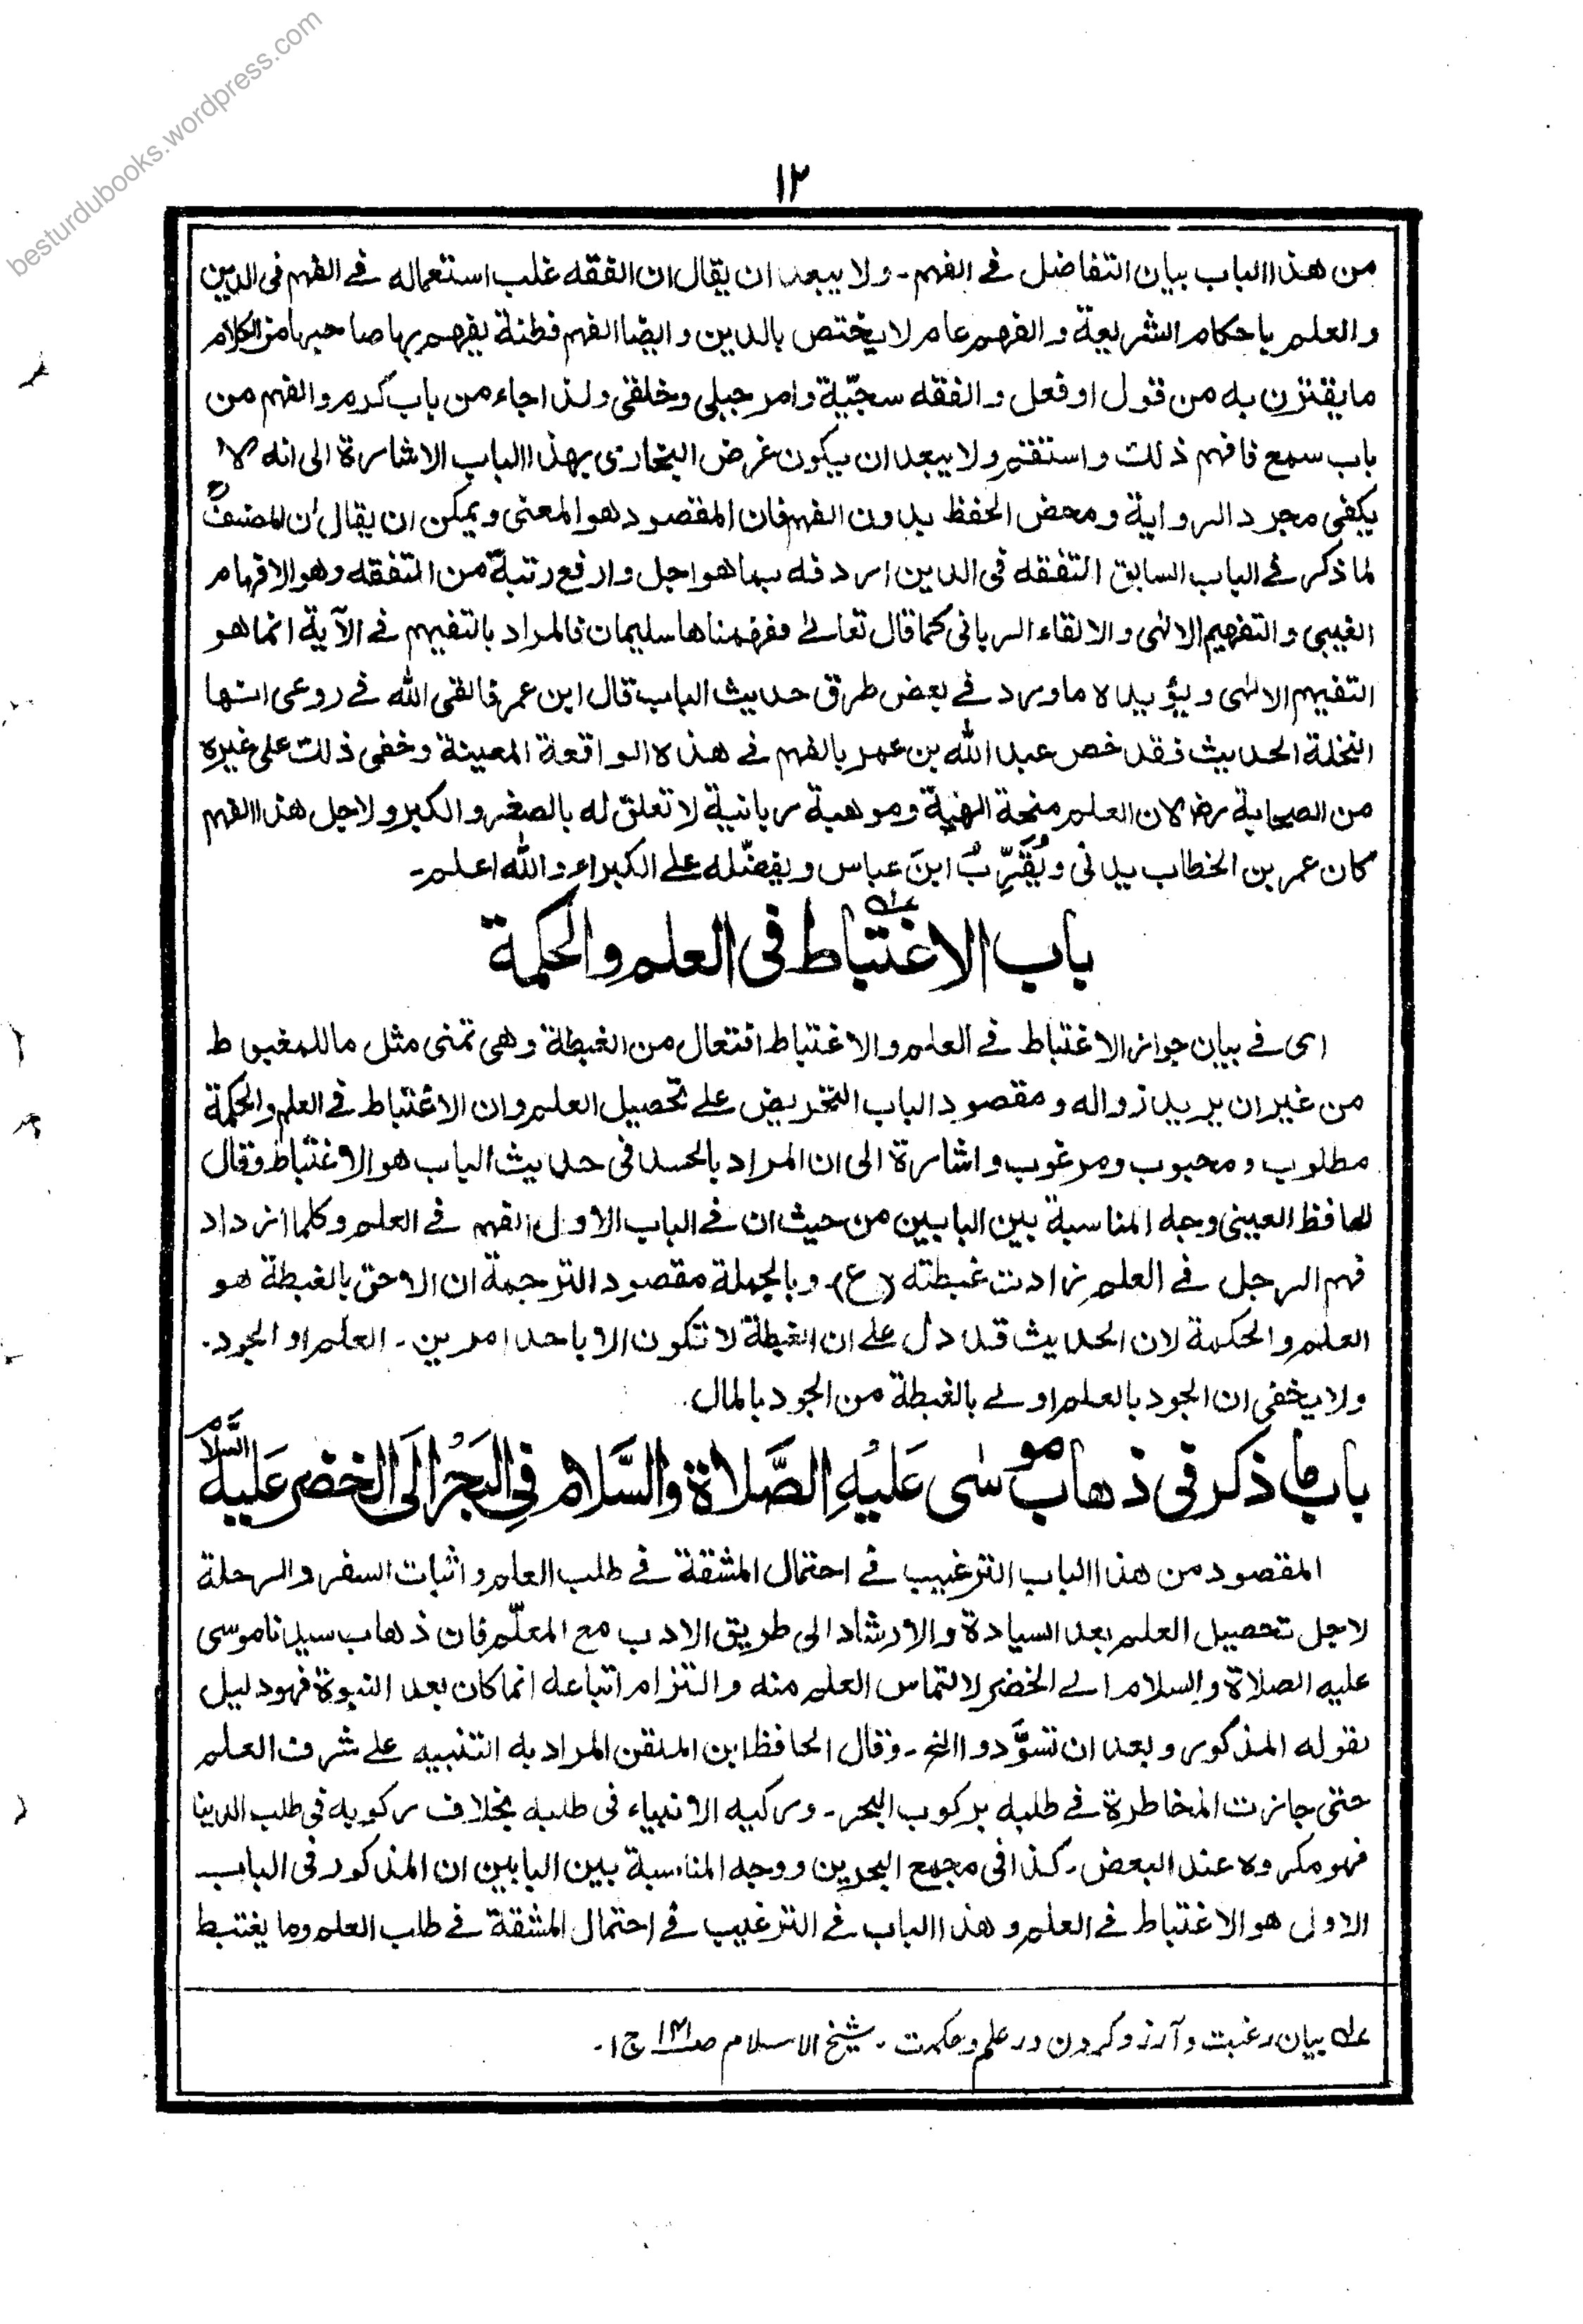 besturdubooks.wordpress.com
١٢
من هذا الباب بيان التفاضل في الفهم ـ ولا يبعد ان يقال ان الفقه غلب استعماله في الفهم في الدين
والعلم باحكام الشريعة والفهم عام لا يختص بالدين وايضا الفهم فطنة يفهم بها صاحبها من الكلام
ما يقترن به من قول او فعل والفقه سجيّة وامر جبلي وخلقي ولذا جاء من باب كرم والفهم من
باب سمع فافهم ذلك واستقم ولا يبعد ان يكون غرض البخاري بهذا الباب الاشارة الى انه لا
يكفي مجرد الرواية ومحض الحفظ بدون الفهم فان المقصود هو المعنى ويمكن ان يقال ان المصنفؒ
لما ذكر في الباب السابق التفقه في الدين اردفه بما هو اجل وارفع رتبة من التفقه وهو الافهام
الغيبي والتفهيم الالٰهي والالقاء الرباني كما قال تعالى ففهمناها سليمان فالمراد بالتفهيم في الآية انما هو
التفهيم الالٰهي ويؤيده ما ورد في بعض طرق حديث الباب قال ابن عمر فالقى الله في روعى انها
النخلة الحديث فقد خص عبد الله بن عمر بالفهم في هذه الواقعة المعينة وخفى ذلك على غيره
من الصحابة رض لان العلم منحة الهٰية وموهبة ربانية لا تعلق له بالصغر والكبر ولاجل هذا الفهم
كان عمر بن الخطاب يدني ويُقَرِّبُ ابنَ عباس ويفضّله على الكبراء والله اعلم ـ
باب الاغتباط في العلم والحكمة
اى في بيان جواز الاغتباط في العلم والاغتباط افتعال من الغبطة وهي تمنى مثل ما للمغبوط
من غير ان يريد زواله ومقصود الباب التحريض على تحصيل العلم وان الاغتباط في العلم والحكمة
مطلوب ومحبوب ومرغوب واشارة الى ان المراد بالحسد في حديث الباب هو الاغتباط وقال
الحافظ العيني وجه المناسبة بين البابين من حيث ان في الباب الاول الفهم في العلم وكلما ازداد
فهم الرجل في العلم زادت غبطته (ع) ـ وبالجملة مقصود الترجمة ان الاحق بالغبطة هو
العلم والحكمة لان الحديث قد دل على ان الغبطة لا تكون الا باحد امرين ـ العلم او الجود ـ
ولا يخفى ان الجود بالعلم اولى بالغبطة من الجود بالمال ـ
باب ما ذكر في ذهاب موسٰى عَلَيْهِ الصَّلاة والسَّلام فِي البَحْرِ الَى الخضر عَلَيهِ السَّلام
المقصود من هذا الباب الترغيب في احتمال المشقة في طلب العلم واثبات السفر والرحلة
لاجل تحصيل العلم بعد السيادة والارشاد الى طريق الادب مع المعلّم فان ذهاب سيدنا موسى
عليه الصلاة والسلام الى الخضر لالتماس العلم منه والتزام اتباعه انما كان بعد النبوة فهو دليل
لقوله المذكور وبعد ان تسوَّدوا الخ ـ وقال الحافظ ابن الملقن المراد به التنبيه على شرف العلم
حتى جازت المخاطرة في طلبه بركوب البحر ـ وركبه الانبياء في طلبه بخلاف ركوبه في طلب الدنيا
فهو مكروه عند البعض ـ كذا في مجمع البحرين ووجه المناسبة بين البابين ان المذكور في الباب
الاول هو الاغتباط في العلم وهذا الباب في الترغيب في احتمال المشقة في طلب العلم وما يغتبط
عله بيان رغبت وآرزو كردن در علم وحكمت ـ شيخ الاسلام صـ ج ١ ـ